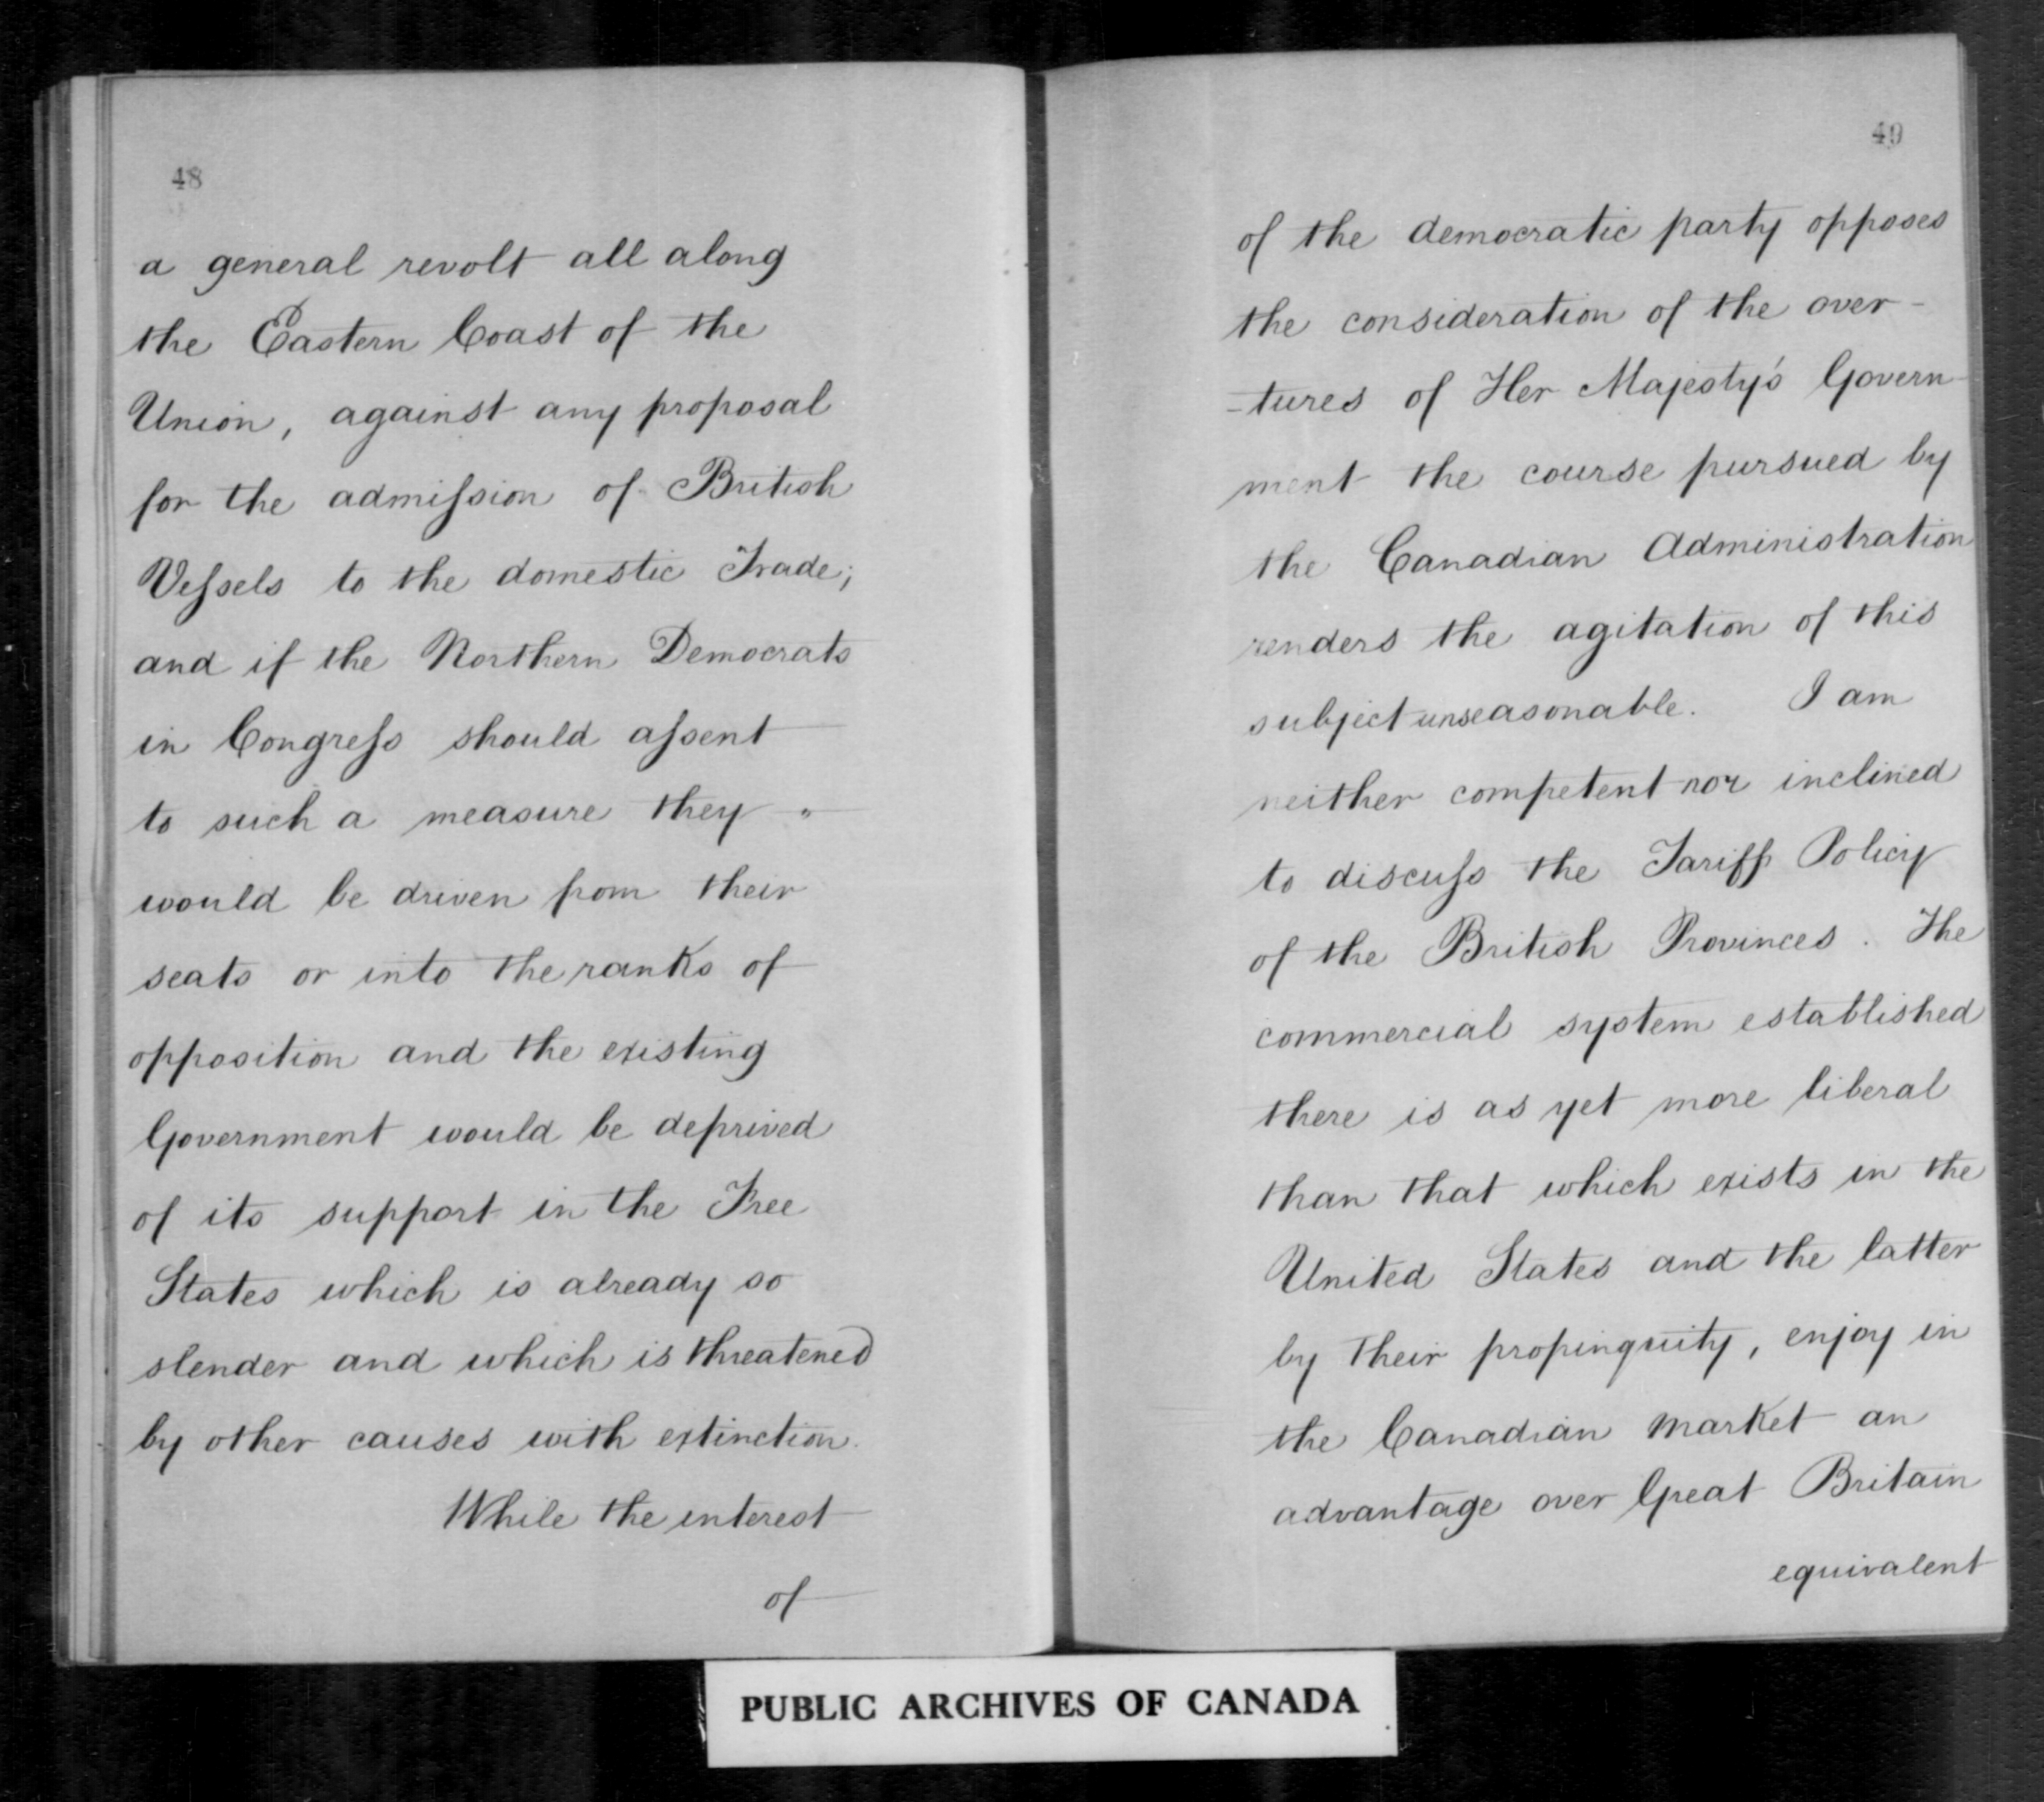 48
a general revolt all along
the Eastern Coast of the
Union, against any proposal
for the admiſsion of British
Veſsels to the domestic Trade;
and if the Northern Democrats
in Congreſs should aſsent
to such a measure they "
would be driven from their
seats or into the ranks of
opposition and the existing
Government would be deprived
of its support in the Free
States which is already so
slender and which is threatened
by other causes with extinction.
While the interest
of
49
of the democratic party opposes
the consideration of the over-
-tures of Her Majesty's Govern-
ment the course pursued by
the Canadian Administration
renders the agitation of this
subject unseasonable. I am
neither competent nor inclined
to discuſs the Tariff Policy
of the British Provinces. The
commercial system established
there is as yet more liberal
than that which exists in the
United States and the latter
by their propinquity, enjoy in
the Canadian market an
advantage over Great Britain
equivalent
PUBLIC ARCHIVES OF CANADA